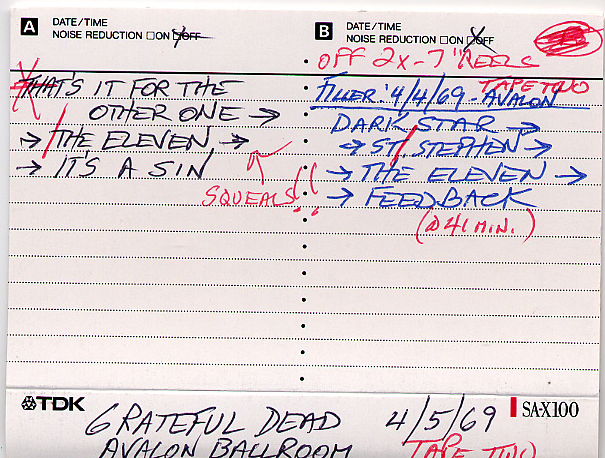 A DATE/TIME
NOISE REDUCTION □ ON □ OFF
B DATE/TIME
NOISE REDUCTION □ ON □ OFF
OFF 2X-7" REELS
THAT'S IT FOR THE
OTHER ONE →
→ THE ELEVEN →
→ IT'S A SIN
SQUEALS!!
TAPE TWO
FILLER: 4/4/69 - AVALON
DARK STAR →
→ ST. STEPHEN →
→ THE ELEVEN →
→ FEEDBACK
(@41 MIN.)
TDK
GRATEFUL DEAD 4/5/69
SA-X100
AVALON BALLROOM
TAPE TWO